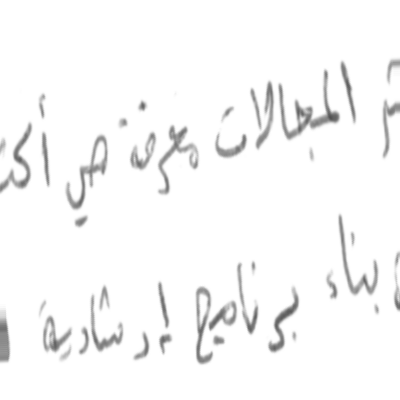 المجالات معرفة هي
بناء برنامج إرشادية